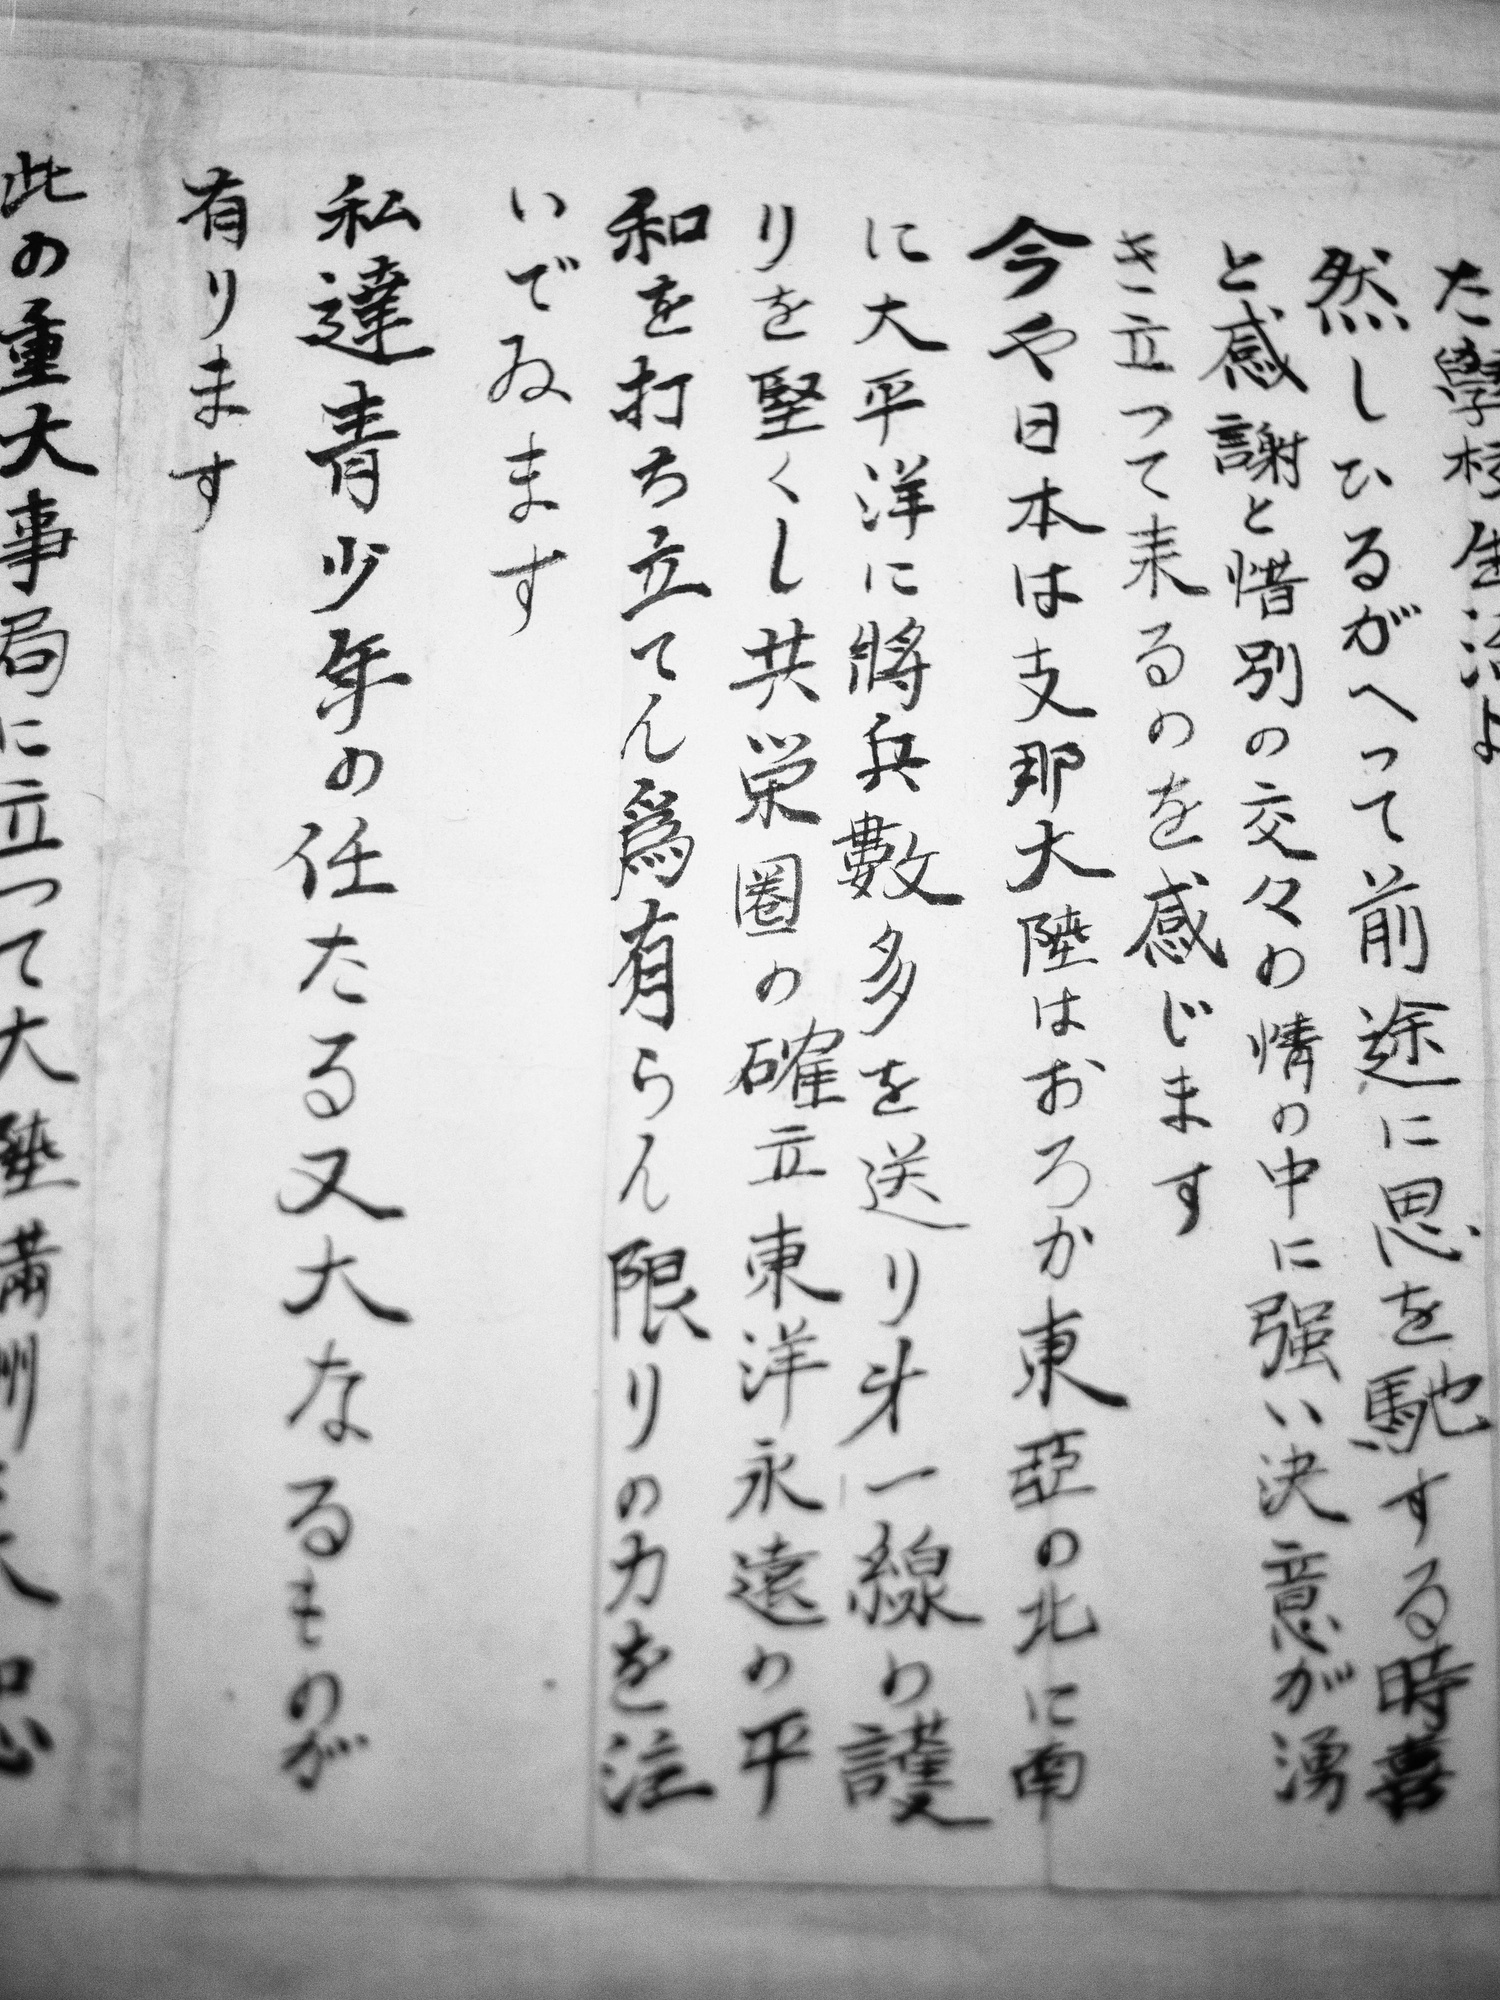 た學校生活よ
然しひるがへって前途に思を馳する時喜
と感謝と惜別の交々の情の中に强い決意が湧
き立って来るのを感じます
今や日本は支那大陸はおろか東亞の北に南
に大平洋に將兵數多を送り㐧一線の護
りを堅くし共栄圏の確立東洋永遠の平
和を打ち立てん爲有らん限りの力を注
いでゐます
私達青少年の任たる又大なるものが
有ります
此の重大事局に立って大陸滿洲